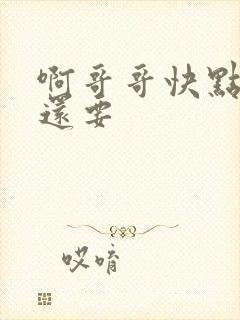 啊哥哥快點
還要
哎唷